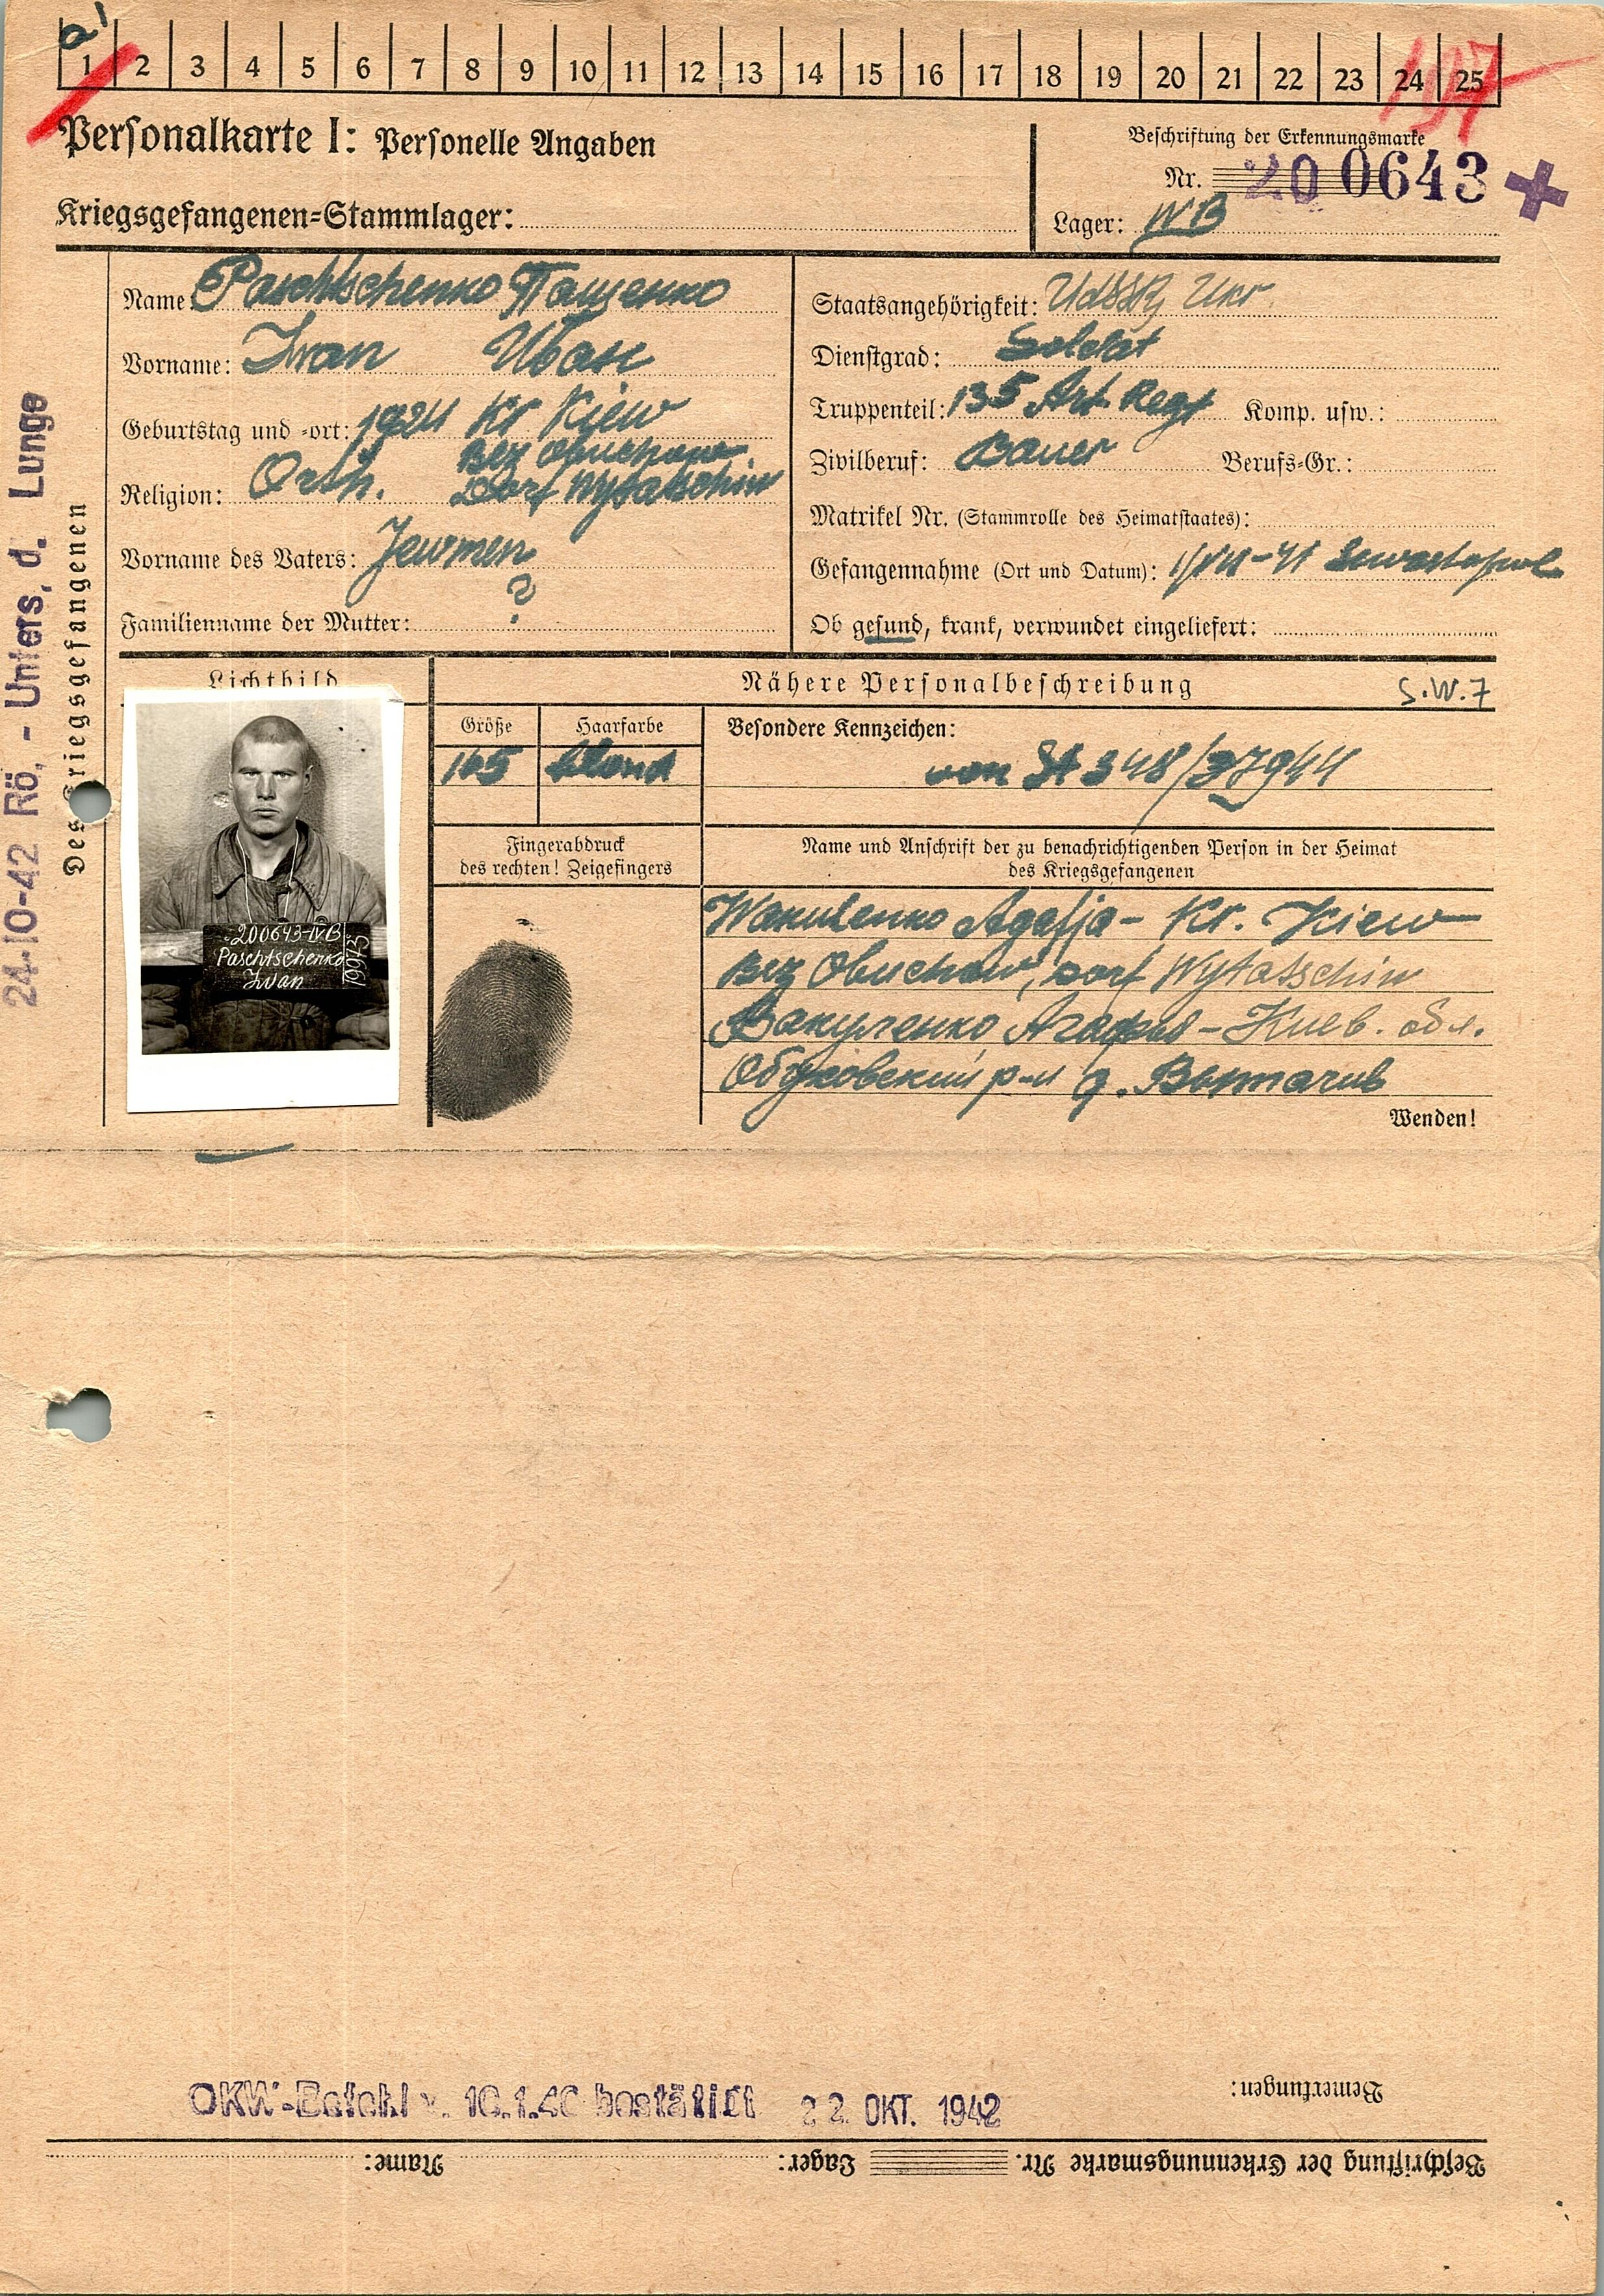 a1
1 2 3 4 5 6 7 8 9 10 11 12 13 14 15 16 17 18 19 20 21 22 23 24 25
197
Personalkarte I: Personelle Angaben
Beschriftung der Erkennungsmarke
Nr. 200643
Kriegsgefangenen-Stammlager:
Lager: IVB
Name: Paschtschenko Пащенко
Vorname: Iwan Иван
Geburtstag und -ort: 1924 Kr Kiew
Bez Obuchow
Religion: Orth. Dorf Wytatschiw
Vorname des Vaters: Jewmen
Familienname der Mutter: ?
Staatsangehörigkeit: UdSSR Ukr
Dienstgrad: Soldat
Truppenteil: 135 Art Regt Komp. usw.:
Zivilberuf: Bauer Berufs-Gr.:
Matrikel Nr. (Stammrolle des Heimatstaates):
Gefangennahme (Ort und Datum): Sewastopol
Ob gesund, krank, verwundet eingeliefert:
24-10-42 Rö,- Unters, d. Lunge
Des Kriegsgefangenen
Lichtbild
Nähere Personalbeschreibung
S.W.7
Größe
165
Haarfarbe
blond
Besondere Kennzeichen:
von St 348/37944
200643-IVB
Paschtschenko
Iwan
19973
Fingerabdruck
des rechten! Zeigefingers
Name und Anschrift der zu benachrichtigenden Person in der Heimat
des Kriegsgefangenen
Wakulenko Agafja - Kr. Kiew
Bez Obuchow, Dorf Wytatschiw
Вакуленко Агафья - Киев. обл.
Обуховский р-н д. Вытачив
Wenden!
Bemerkungen:
OKW-Befehl v. 10.1.40 bestätigt 22. OKT. 1942
Beschriftung der Erkennungsmarke Nr. Lager: Name: